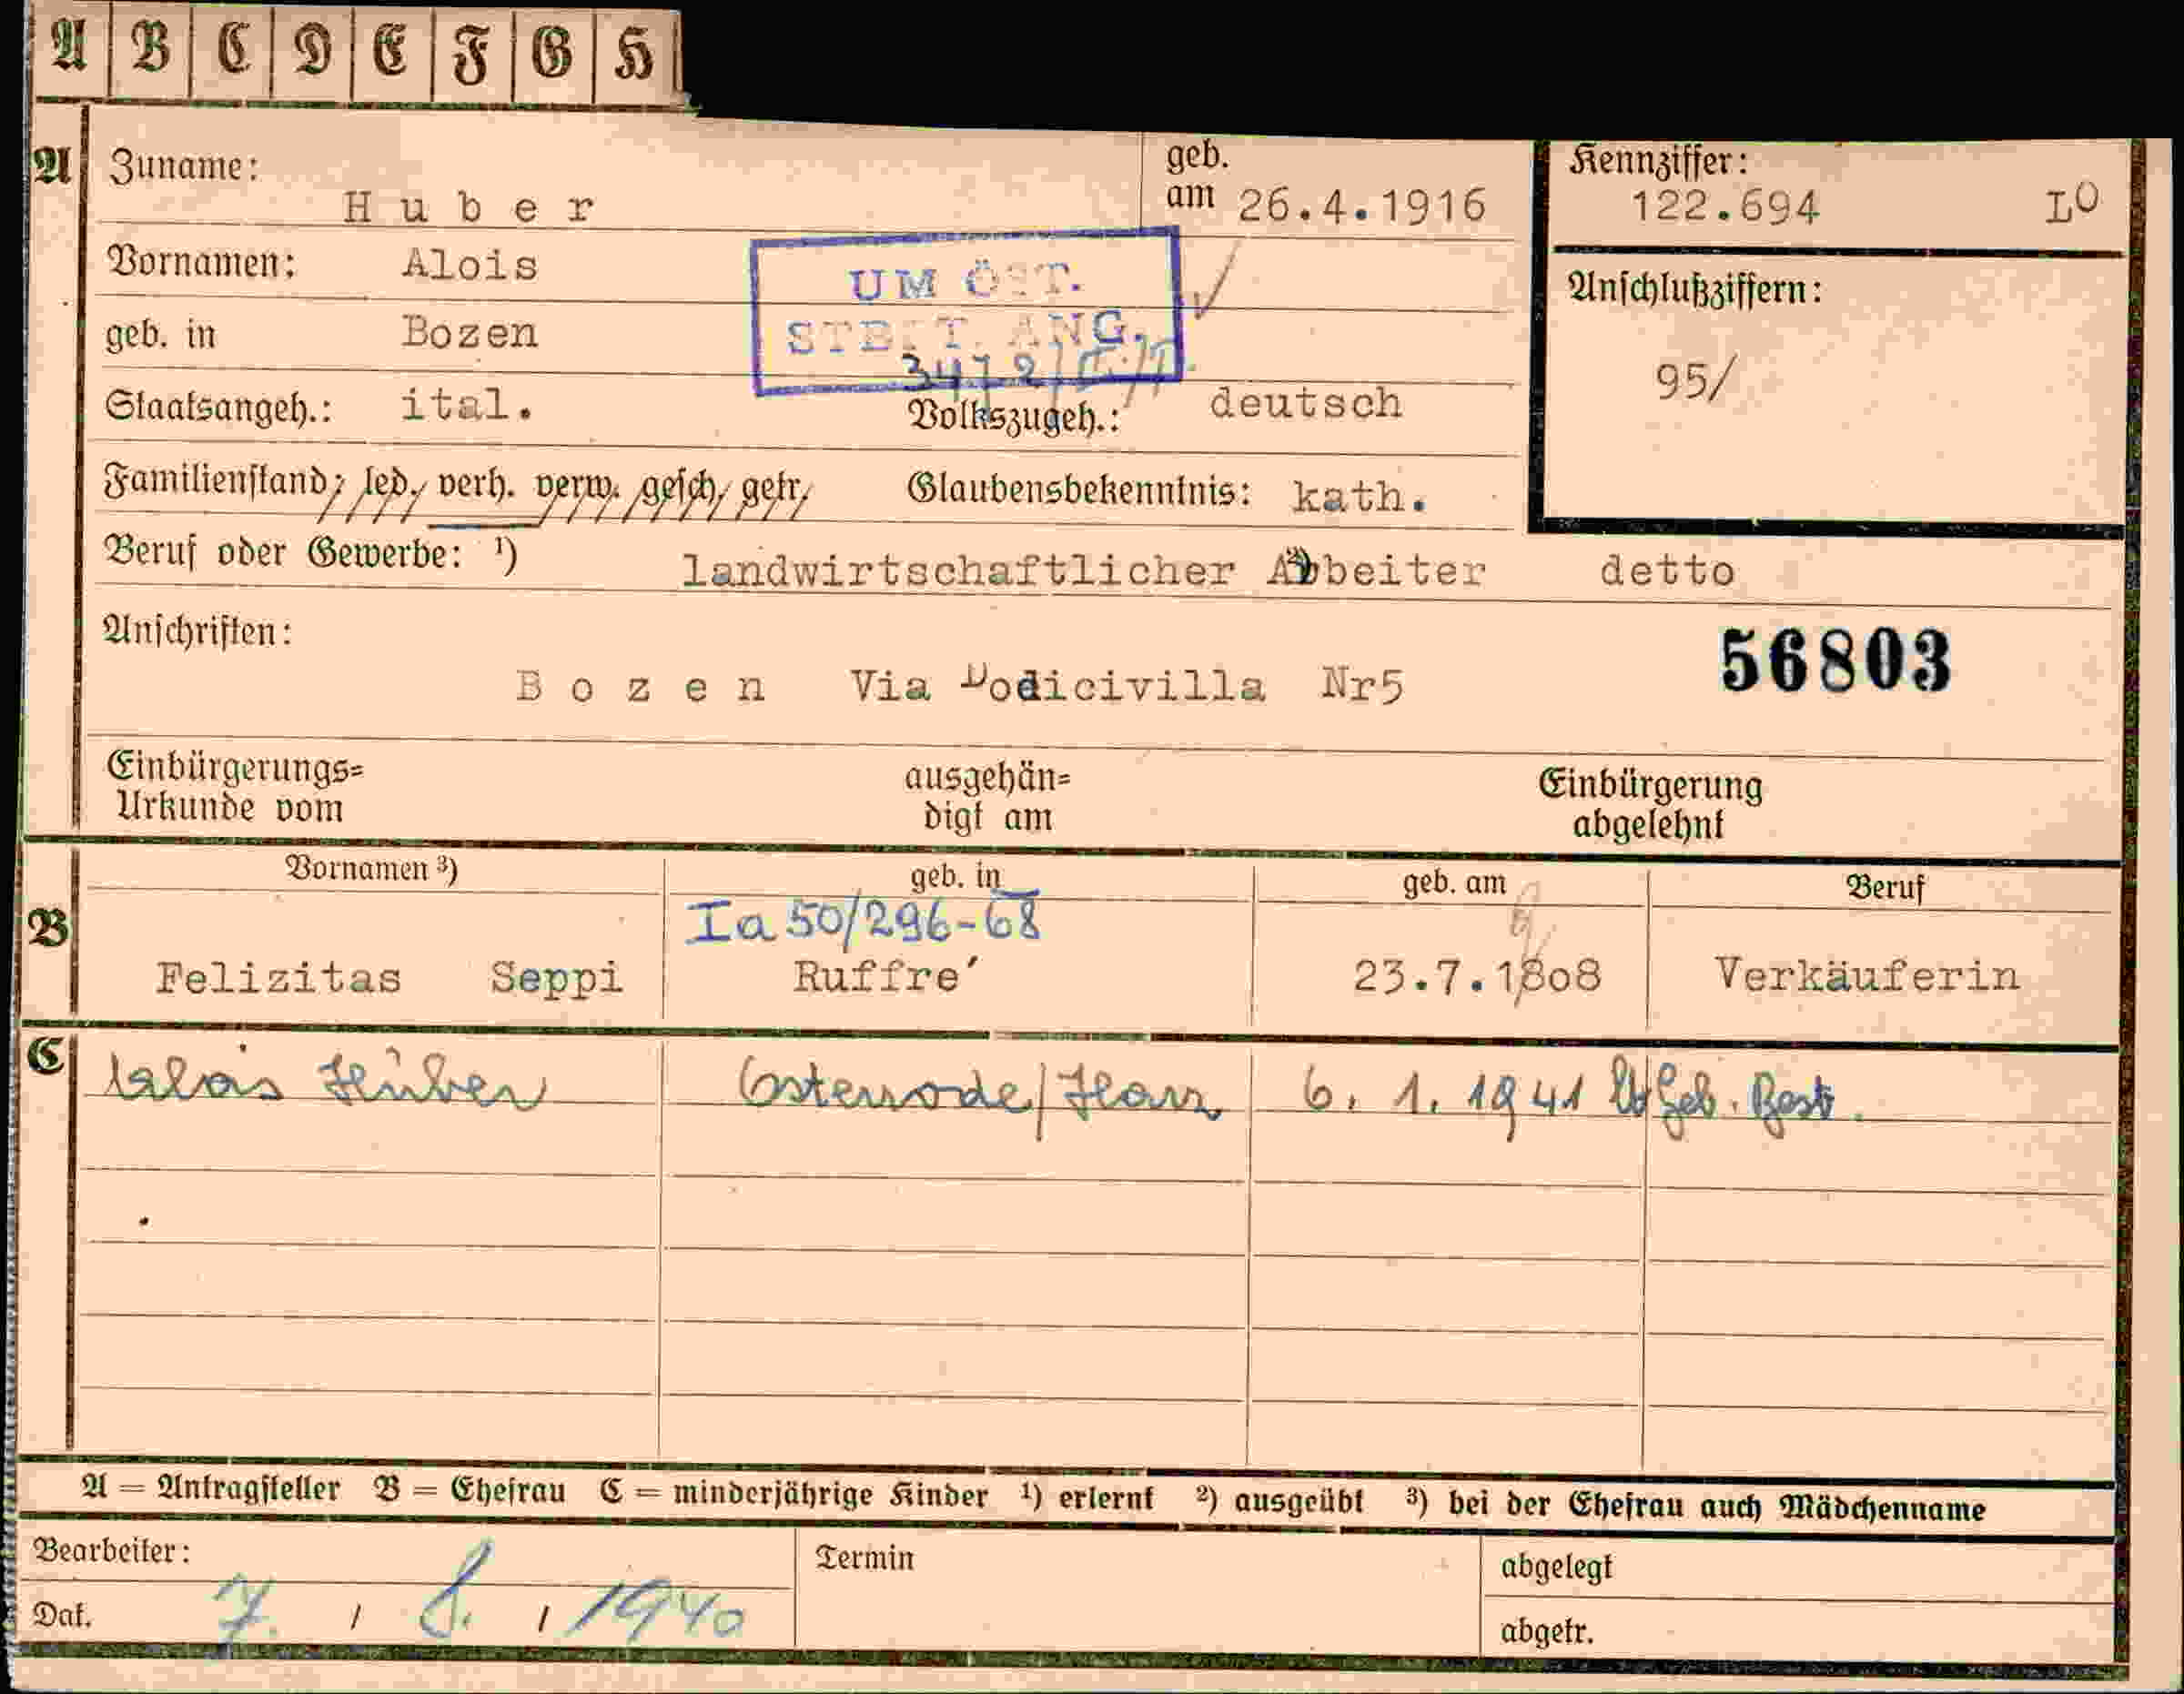 A B C D E F G H
A Zuname: Huber geb. am 26.4.1916 Kennziffer: 122.694 LO
Vornamen: Alois UM ÖST. Anschlußziffern:
geb. in Bozen ANG. 95/
Staatsangeh.: ital. Volkszugeh.: deutsch
Familienstand: led. verh. verw. gesch. getr. Glaubensbekenntnis: kath.
Beruf oder Gewerbe: ¹) landwirtschaftlicher Arbeiter ²) detto
Anschriften: 56803
Bozen Via Dodicivilla Nr5
Einbürgerungs= ausgehän= Einbürgerung
Urkunde vom digt am abgelehnt
Vornamen ³) geb. in geb. am Beruf
B Ia 50/296-68 9
Felizitas Seppi Ruffre´ 23.7.1808 Verkäuferin
C Alois Huber Osterode/Harz 6. 1. 1941 Geb. Best.
A = Antragsteller B = Ehefrau C = minderjährige Kinder ¹) erlernt ²) ausgeübt ³) bei der Ehefrau auch Mädchenname
Bearbeiter: Termin abgelegt
Dat. 7. / 8. / 1940 abgetr.